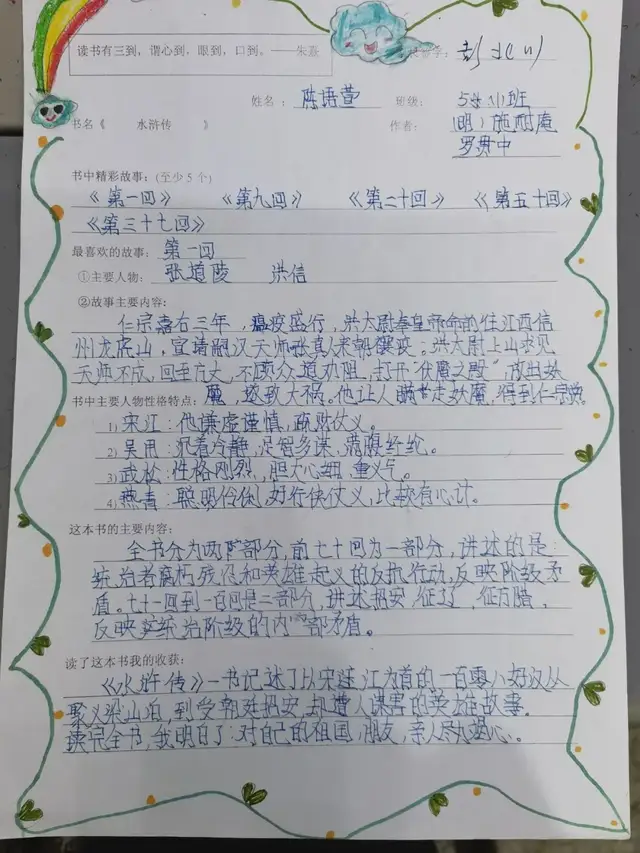 读书有三到，谓心到，眼到，口到。——朱熹
姓名： 陈语萱 班级： 5年(1)班
书名《 水浒传 》 作者： (明)施耐庵
罗贯中
书中精彩故事：(至少5个)
《第一回》 《第九回》 《第二十回》 《第五十回》
《第三十七回》
最喜欢的故事： 第一回
①主要人物： 张道陵 洪信
②故事主要内容：
仁宗嘉右三年，瘟疫盛行，洪太尉奉皇帝命前往江西信
州龙虎山，宣请嗣汉天师张真人来朝禳疫；洪太尉上山求见
天师不成，回至方丈，不顾众道劝阻，打开"伏魔之殿"，放出妖
魔，遂致大祸。他让人瞒走妖魔，得到仁宗
书中主要人物性格特点：
1) 宋江：他谦虚谨慎，疏财仗义。
2) 吴用：沉着冷静，足智多谋，满腹经纶。
3) 武松：性格刚烈，胆大心细，重义气。
4) 燕青：聪明伶俐，好行侠仗义，比较有心计。
这本书的主要内容：
全书分为两部分，前七十回为一部分，讲述的是
统治者腐朽残忍和英雄起义的反抗行动，反映阶级矛
盾。七十一回到一百回是二部分，讲述招安，征辽，征方腊，
反映统治阶级的内部矛盾。
读了这本书我的收获：
《水浒传》一书记述了以宋江为首的一百零八好汉从
聚义梁山泊，到受朝廷招安，却遭人谋害的英雄故事。
读完全书，我明白了：对自己的祖国，朋友，亲人尽忠心。